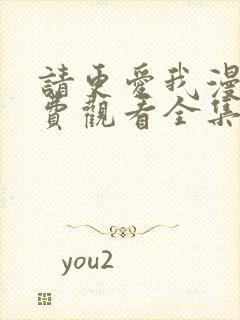 請更愛我漫
費觀看全集
you2